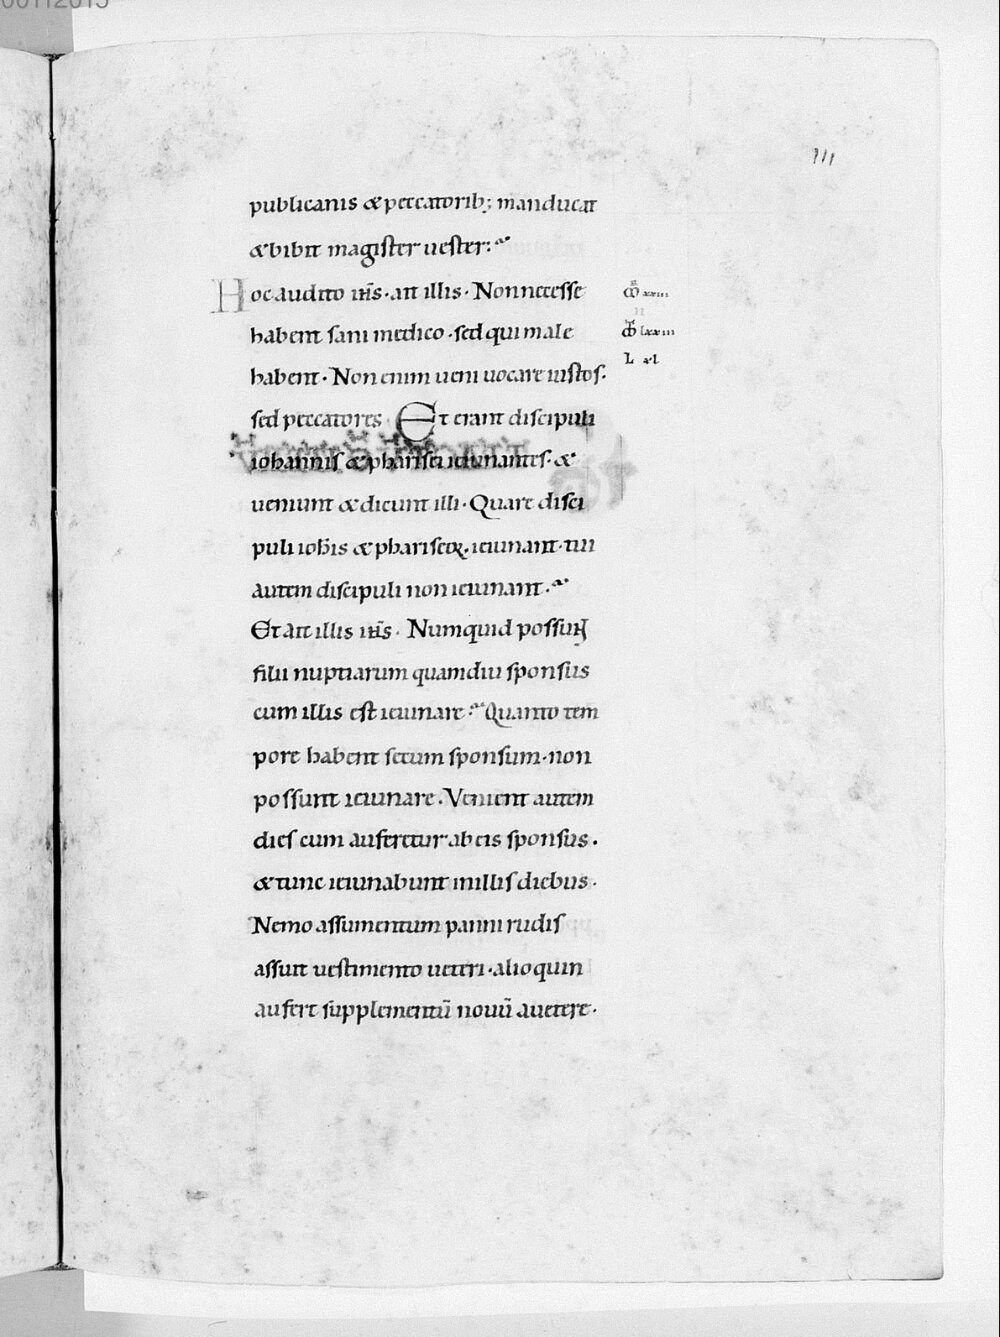 111
publicanis & peccatorib; manducat
& bibit magister uester:
Hoc audito ihs. ait illis. Non necesse
habent sani medico. sed qui male
habent. Non enim ueni uocare iustos.
sed peccatores Et erant discipuli
iohannis & pharisei ieiunantes. &
ueniunt & dicunt illi. Quare disci
puli iohis & phariseoꝝ. ieiunant. tui
autem discipuli non ieiunant.
Et ait illis ihs. Numquid possunt
filii nuptiarum quamdiu sponsus
cum illis est ieiunare. Quanto tem
pore habent secum sponsum. non
possunt ieiunare. Venient autem
dies cum auferetur ab eis sponsus.
& tunc ieiunabunt in illis diebus.
Nemo assumentum panni rudis
assuit uestimento ueteri. alioquin
aufert supplementū nouū a uetere.